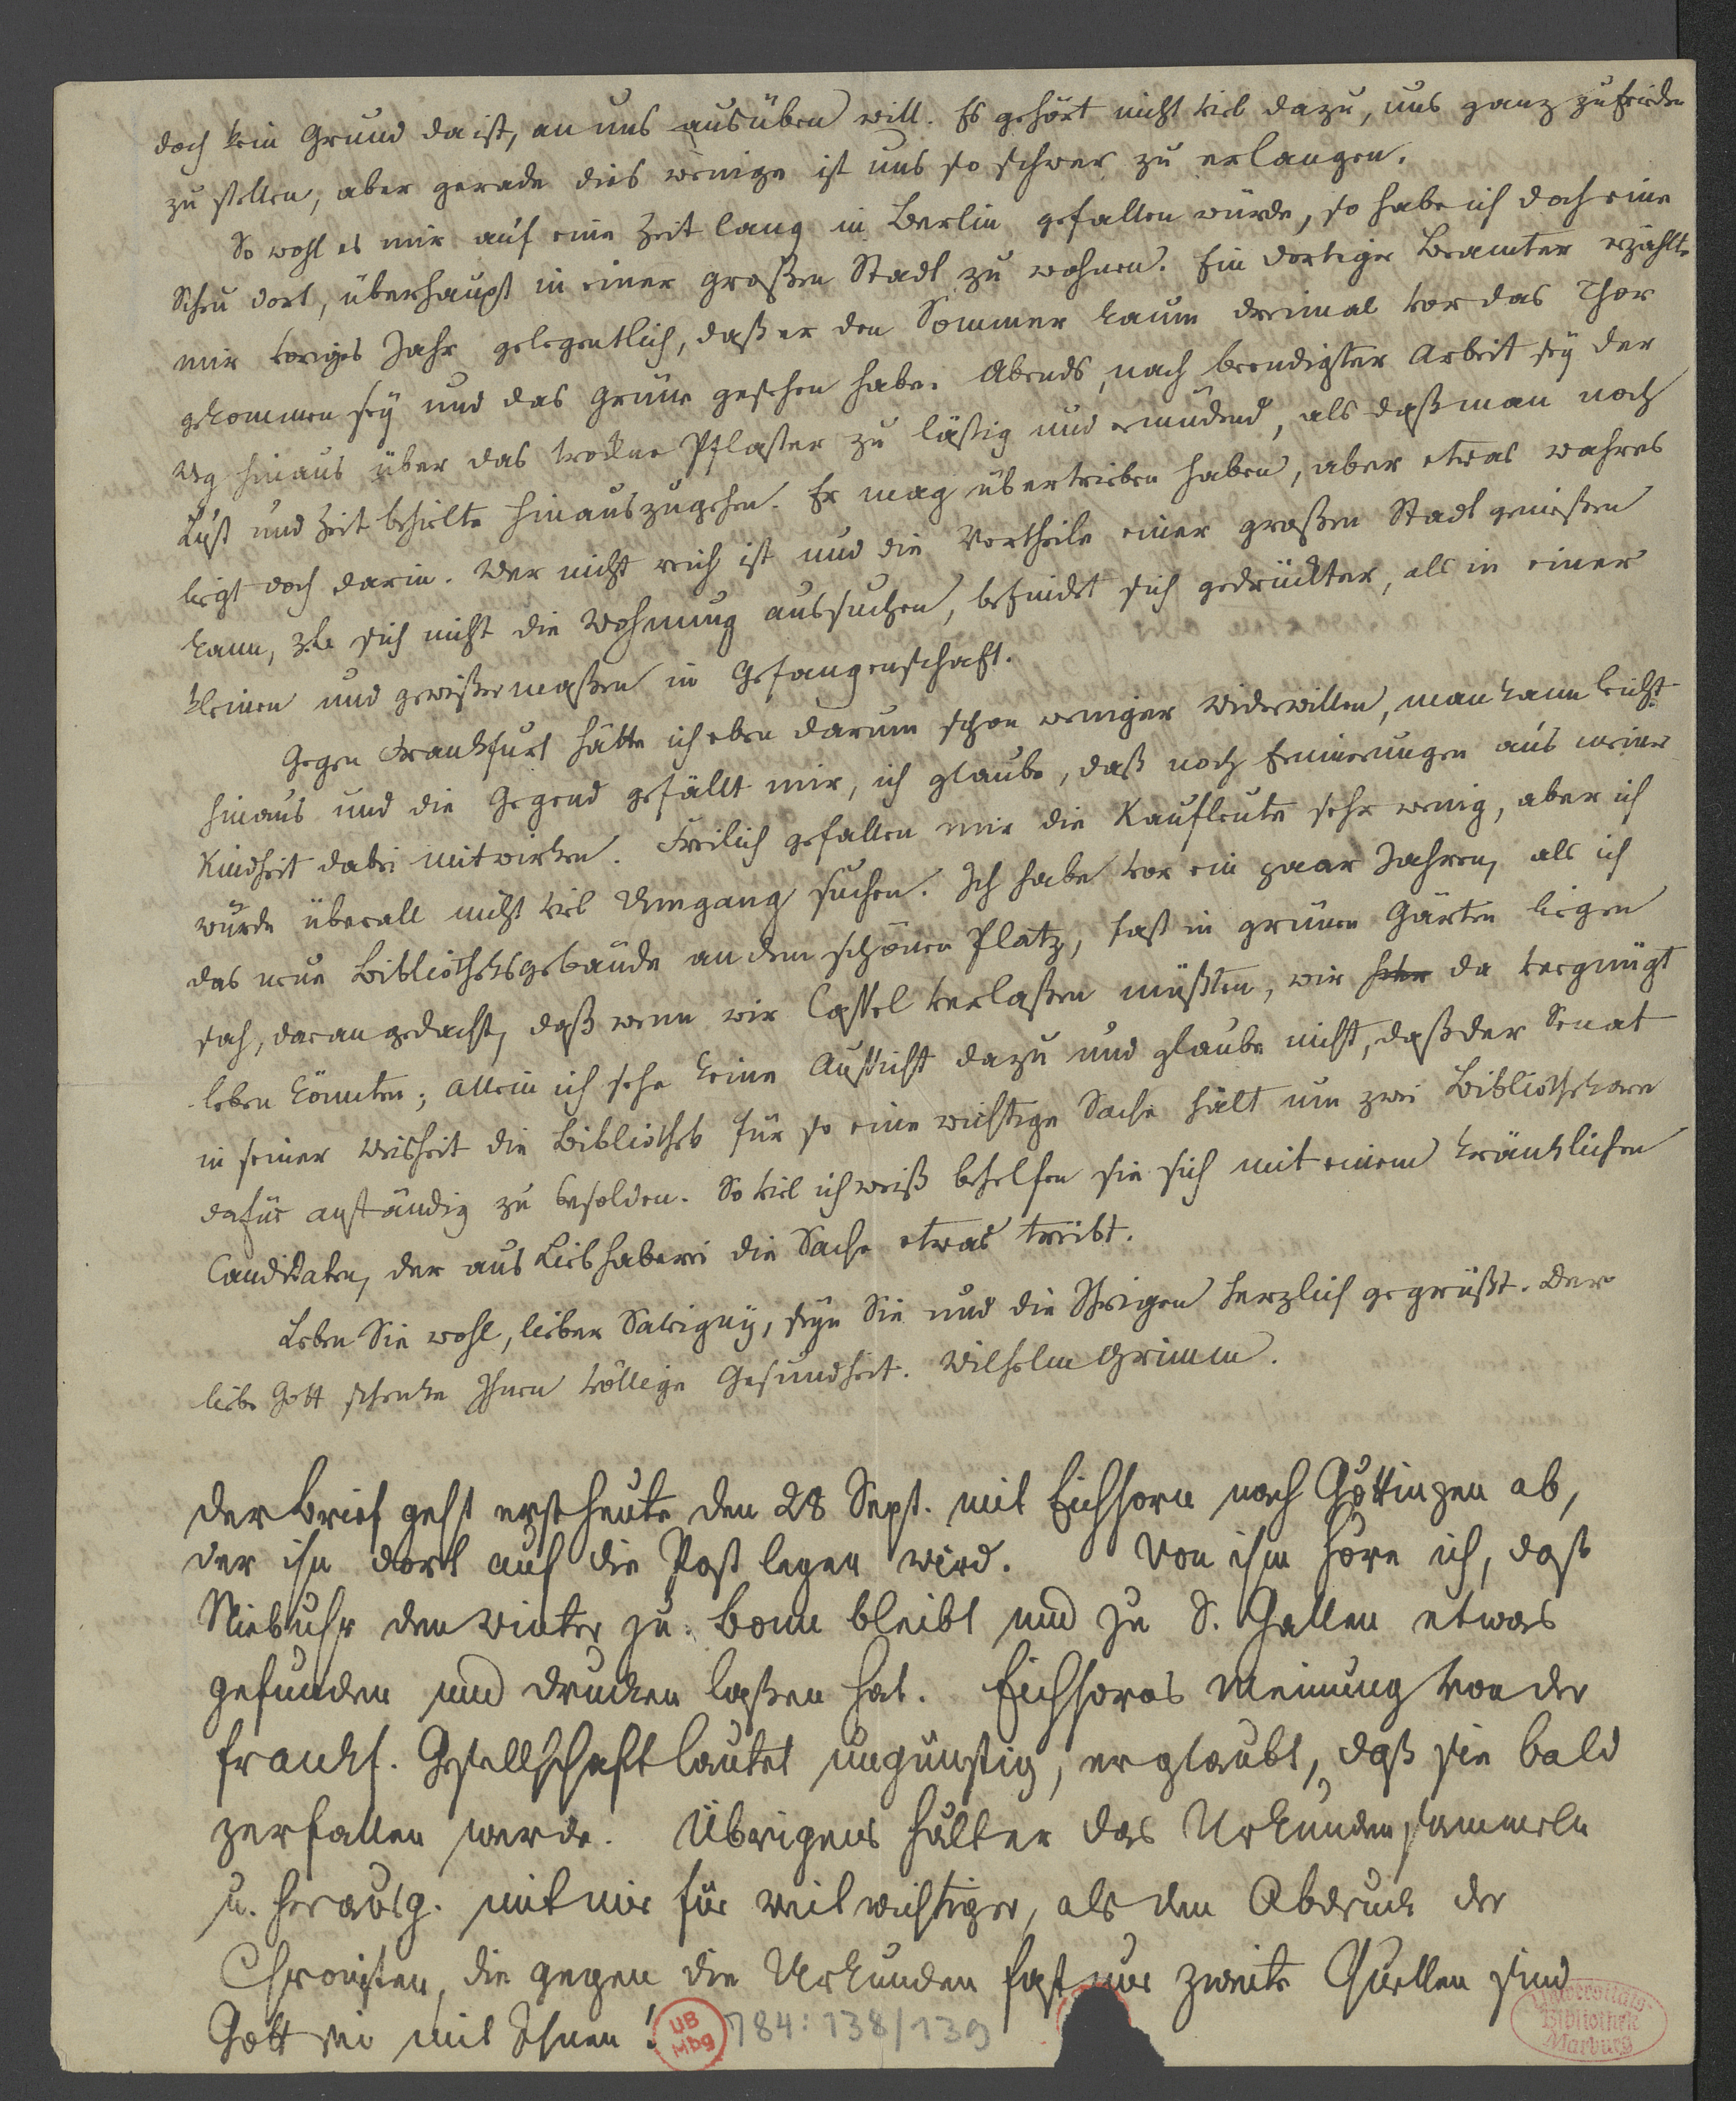 doch kein Grund da ist, an uns ausüben will. Es gehört nicht viel dazu, uns ganz zufrieden
zu stellen, aber gerade dies wenige ist uns so schwer zu erlangen.
So wohl es mir auf eine Zeit lang in Berlin gefallen würde, so habe ich doch eine
Scheu dort, überhaupt in einer großen Stadt zu wohnen. Ein dortiger Beamter erzählte
mir voriges Jahr gelegentlich, daß er den Sommer kaum dreimal vor das Thor
gekommen sey und das Grüne gesehen habe. Abends, nach beendigter Arbeit sey der
Weg hinaus über das trockne Pflaster zu lästig und ermüdend, als daß man noch
Lust und Zeit behielte hinauszugehen. Er mag übertrieben haben, aber etwas wahres
liegt doch darin. Wer nicht reich ist und die Vortheile einer großen Stadt genießen
kann, z.b. sich nicht die Wohnung aussuchen, befindet sich gedrückter, als in einer
kleinen und gewißermaßen in Gefangenschaft.
Gegen Frankfurt hätte ich eben darum schon weniger Widerwillen, man kann leicht
hinaus und die Gegend gefällt mir, ich glaube, daß noch Erinnerungen aus meiner
Kindheit dabei mitwirken. Freilich gefallen mir die Kaufleute sehr wenig, aber ich
würde überall nicht viel Umgang suchen. Ich habe vor ein paar Jahren, als ich
das neue Bibliotheksgebäude an dem schönen Platz, fast in grünen Gärten liegen
sah, daran gedacht, daß wenn wir Cassel verlaßen müßten, wir da vergnügt
leben könnten; allein ich sehe keine Aussicht dazu und glaube nicht, daß der Senat
in seiner Weisheit die Bibliothek für so eine wichtige Sache hält um zwei Bibliothekare
dafür anständig zu besolden. So viel ich weiß behelfen sie sich mit einem kränklichen
Candidaten, der aus Liebhaberei die Sache etwas treibt.
Leben Sie wohl, lieber Savigny, seyn Sie und die Ihrigen herzlich gegrüßt. Der
liebe Gott schenke Ihnen völlige Gesundheit. Wilhelm Grimm.
der Brief geht erst heute den 28 Sept. mit Eichhorn nach Göttingen ab,
der ihn dort auf die Post legen wird. Von ihm höre ich, daß
Niebuhr den Winter zu Bonn bleibt und zu S. Gallen etwas
gefunden und drucken laßen hat. Eichhorns Meinung von der
frankf. Gesellschaft lautet ungünstig, er glaubt, daß sie bald
zerfallen werde. Übrigens hält er das Urkundensammeln
u. herausg. mit mir für weit wichtiger, als den Abdruck der
Chronisten, die gegen die Urkunden fast nur zweite Quellen sind
Gott sei mit Ihnen!
UB
Mbg
784: 138/139
Universitäts-
Bibliothek
Marburg